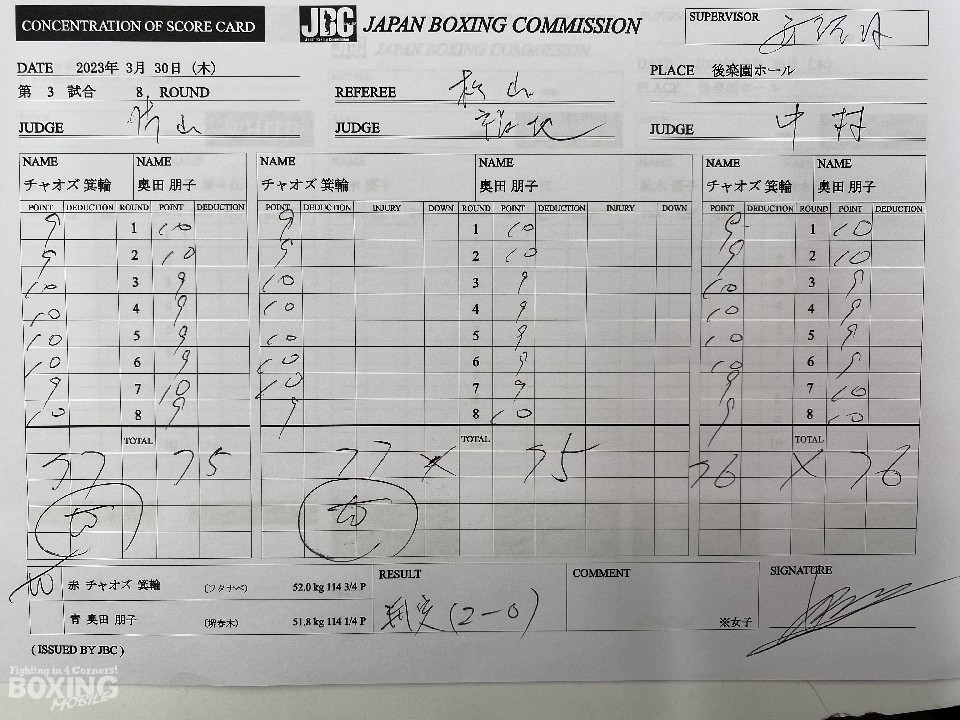 CONCENTRATION OF SCORE CARD JBC JAPAN BOXING COMMISSION SUPERVISOR
DATE 2023年 3月 30日 (木) PLACE 後楽園ホール
第 3 試合 8 ROUND REFEREE 松山
JUDGE 片山 JUDGE JUDGE 中村
NAME NAME NAME NAME NAME NAME
チャオズ 箕輪 奥田 朋子 チャオズ 箕輪 奥田 朋子 チャオズ 箕輪 奥田 朋子
POINT DEDUCTION ROUND POINT DEDUCTION POINT DEDUCTION INJURY DOWN ROUND POINT DEDUCTION INJURY DOWN POINT DEDUCTION ROUND POINT DEDUCTION
9 1 10 9 1 10 9 1 10
9 2 10 9 2 10 9 2 10
10 3 9 10 3 9 10 3 9
10 4 9 10 4 9 10 4 9
10 5 9 10 5 9 10 5 9
10 6 9 10 6 9 10 6 9
9 7 10 10 7 9 9 7 10
10 8 9 9 8 10 9 8 10
TOTAL TOTAL TOTAL
77 75 77 × 75 76 × 76
W 赤 チャオズ 箕輪 (ワタナベ) 52.0 kg 114 3/4 P RESULT COMMENT SIGNATURE
青 奥田 朋子 (堺春木) 51.8 kg 114 1/4 P 判定 (2-0) ※女子
( ISSUED BY JBC )
Fighting in 4 Corners!
BOXING
MOBILE